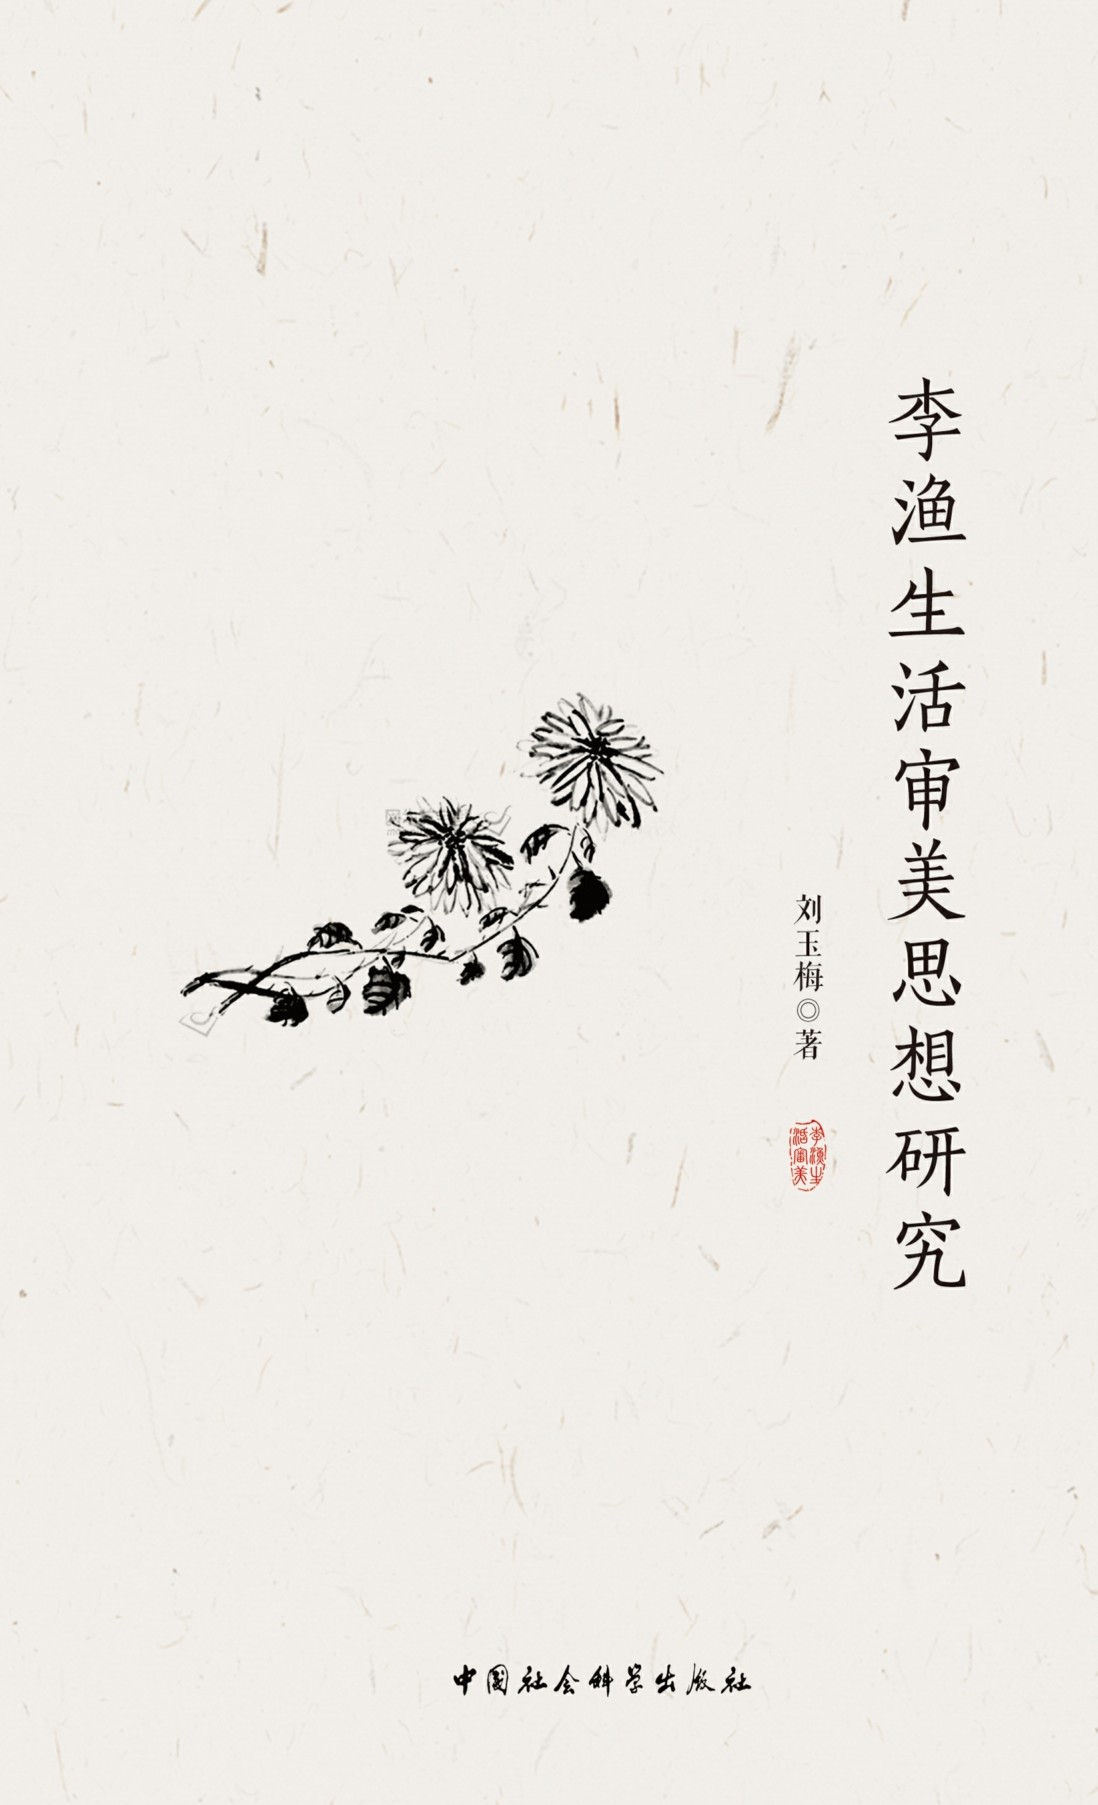 李渔生活审美思想研究
刘玉梅◎著
李渔生
活审美
中国社会科学出版社